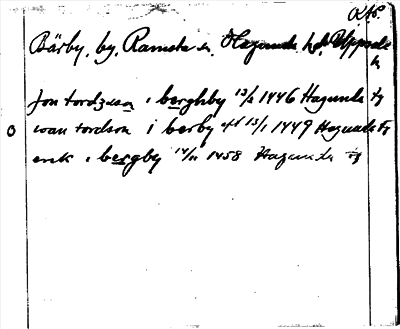 Bärby, by, Ramsta sn, Hagunda hd, Uppsala
l.
Jon tordzson i berghby 13/2 1446 Hagunda tg
ioan tordson i berby 13/1 1449 Hagunda tg
erik i bergby 14/11 1458 Hagunda tg